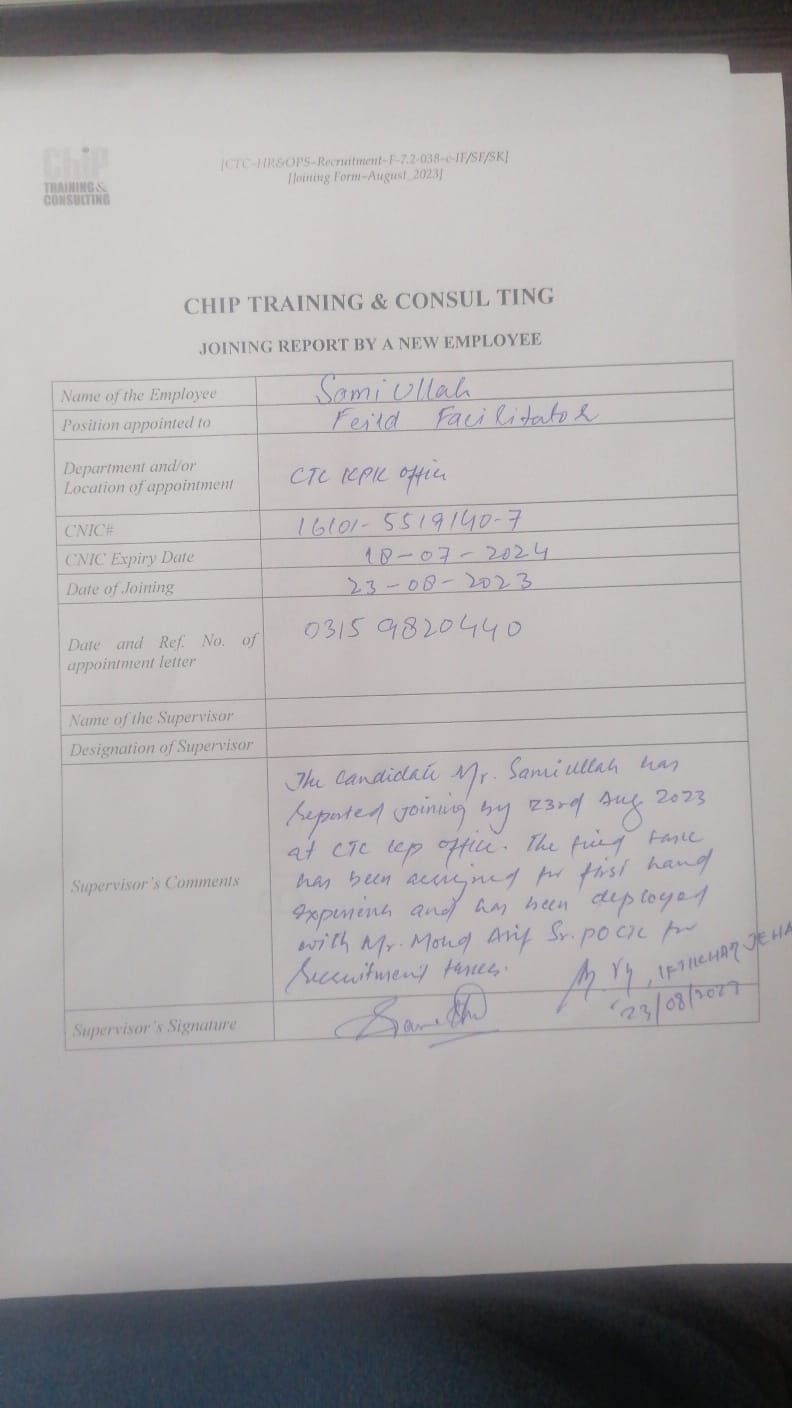 ChiP
TRAINING &
CONSULTING
[CTC-HR&OPS-Recruitment-F-7.2-038-c-IF/SF/SK]
[Joining Form-August_2023]
CHIP TRAINING & CONSUL TING
JOINING REPORT BY A NEW EMPLOYEE
Name of the Employee Sami Ullah
Position appointed to Feild Facilitator
Department and/or
Location of appointment CTC KPK office
CNIC# 16101-5519140-7
CNIC Expiry Date 18-07-2024
Date of Joining 23-08-2023
Date and Ref. No. of
appointment letter 0315 9820440
Name of the Supervisor
Designation of Supervisor
Supervisor's Comments
The candidate Mr. Sami ullah has
reported joining by 23rd Aug 2023
at CTC kp office. The field task
has been assigned for first hand
experience and has been deployed
with Mr. Mohd Asif Sr. PO CTC for
recruitment tasks.
IFTIKHAR JEHA
23/08/2023
Supervisor's Signature